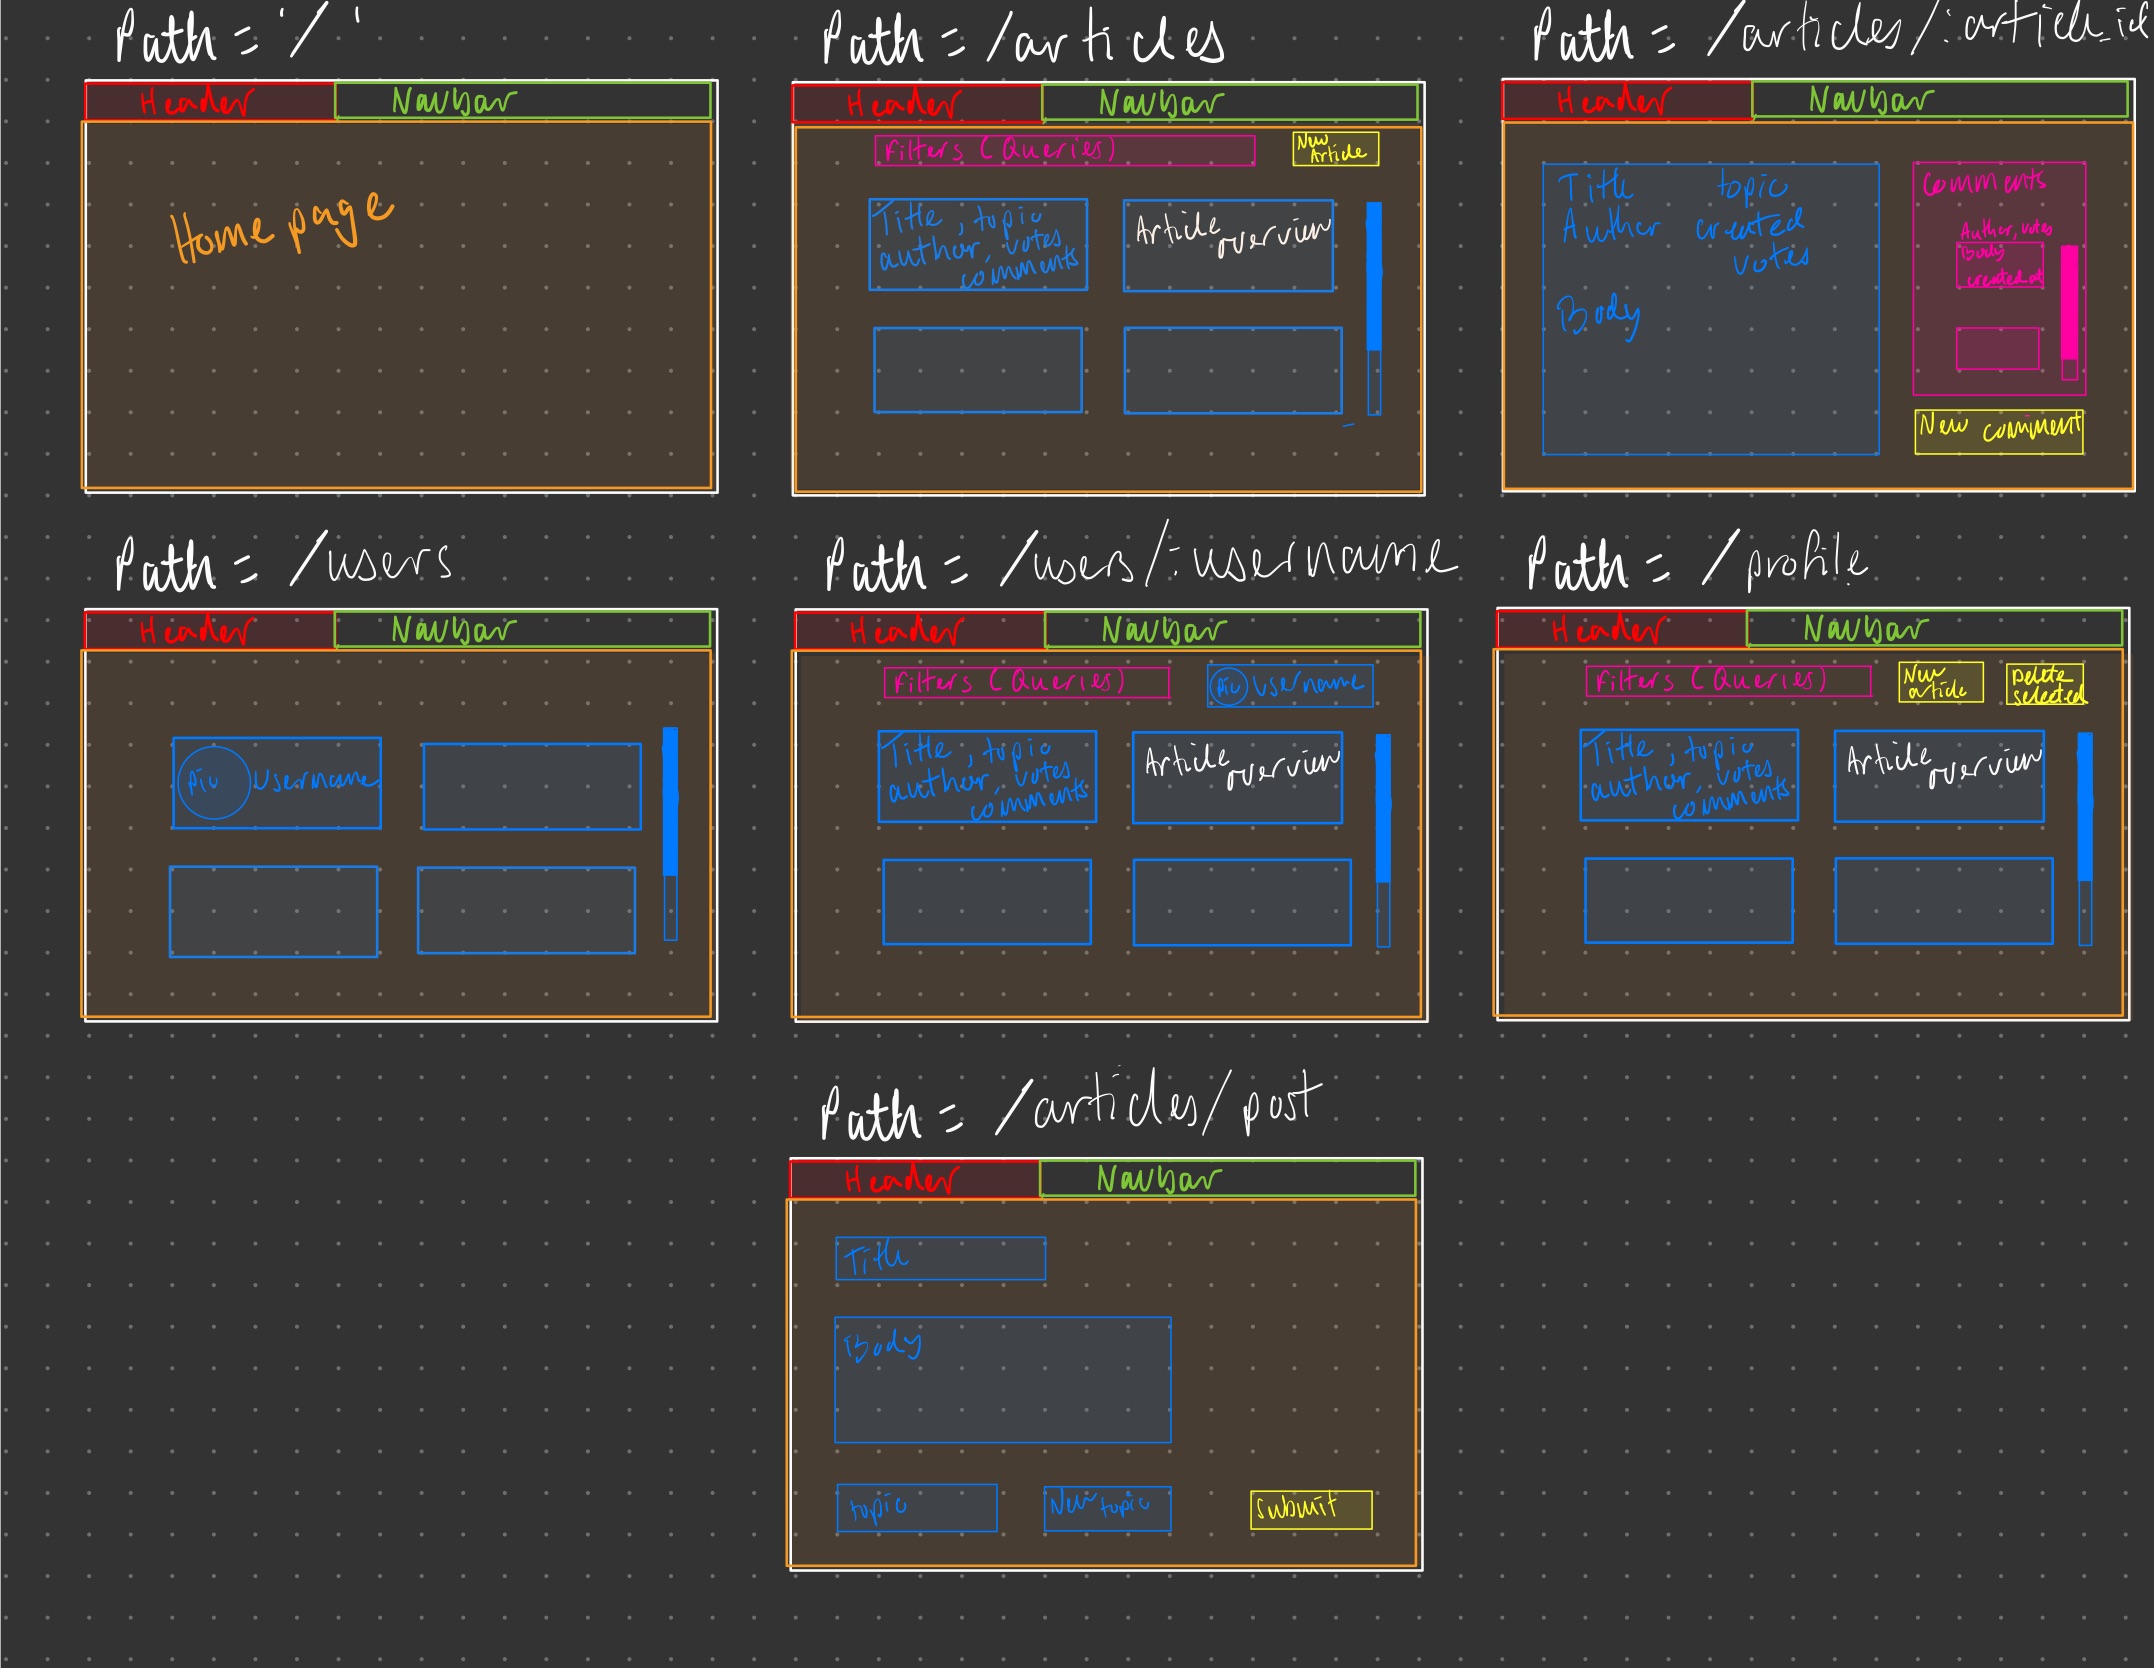 Path = '/'
Header
Navbar
Home page
Path = /articles
Header
Navbar
Filters (Queries)
New
Article
Title, topic
author, votes
comments
Article
overview
Path = /articles/:article_id
Header
Navbar
Title topic
Author created
votes
Body
Comments
Author, votes
Body
created at
New comment
Path = /users
Header
Navbar
pic Username
Path = /users/:username
Header
Navbar
Filters (Queries)
pic username
Title, topic
author, votes
comments
Article
overview
Path = /profile
Header
Navbar
Filters (Queries)
New
article
Delete
selected
Title, topic
author, votes
comments
Article
overview
Path = /articles/post
Header
Navbar
Title
Body
topic
New topic
submit